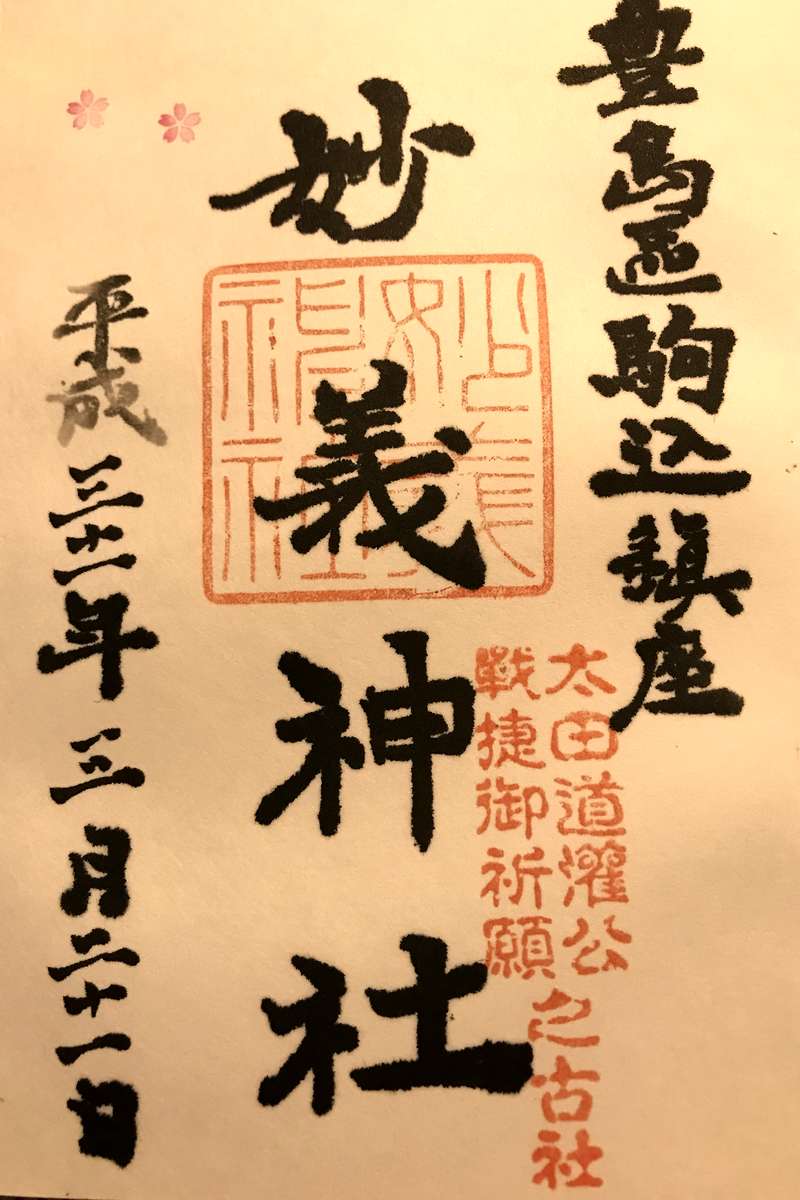 豊島區駒込鎮座
太田道灌公
戰捷御祈願
之古社
妙義神社
妙義
神社
平成三十一年三月三十一日